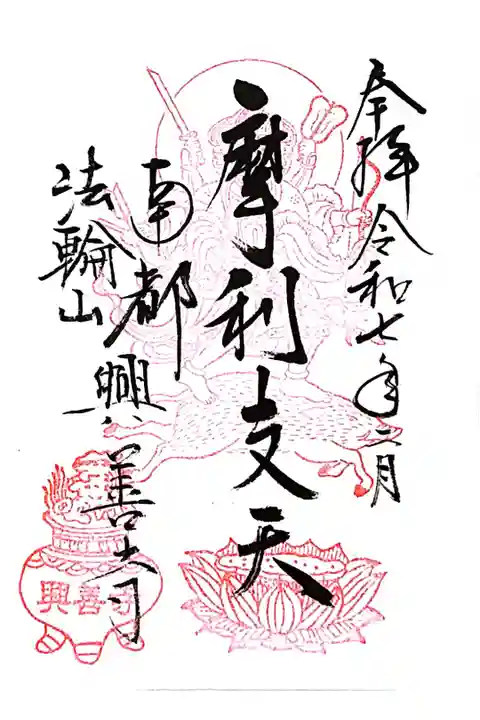 奉拝 令和七年二月
摩利支天
南都 興善寺
法輪山
興善寺